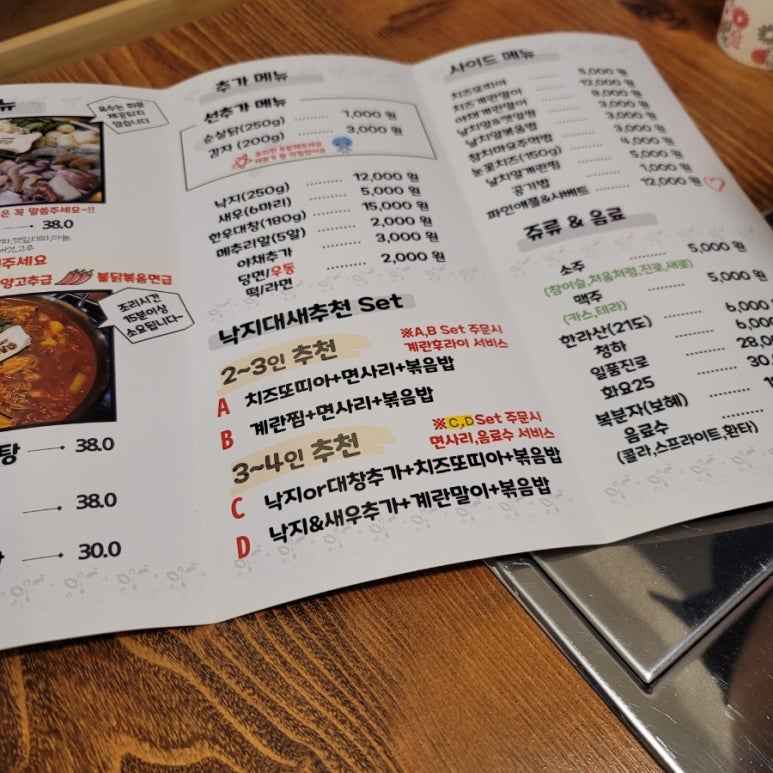 뉴
육수는 따로
제공되지
않습니다
은 꼭 말씀주세요~!!
38.0
버섯,고추
주세요
양고추급 불닭볶음면급
조리시간
15분이상
소요됩니다~
탕 → 38.0
→ 38.0
→ 30.0
추가 메뉴
선추가 메뉴
순살닭(250g) ........ 7,000 원
감자 (200g) ........ 3,000 원
낙지(250g) ........ 12,000 원
새우(6마리) ........ 5,000 원
한우대창(180g) ........ 15,000 원
메추리알(5알) ........ 2,000 원
야채추가 ........ 3,000 원
당면/우동
떡/라면 ........ 2,000 원
낙지대새추천 Set
2~3인 추천
※A,B Set 주문시
계란후라이 서비스
A 치즈또띠아+면사리+볶음밥
B 계란찜+면사리+볶음밥
3~4인 추천
※C,D Set 주문시
면사리,음료수 서비스
C 낙지or대창추가+치즈또띠아+볶음밥
D 낙지&새우추가+계란말이+볶음밥
사이드 메뉴
치즈또띠아 ........ 5,000 원
치즈계란말이 ........ 12,000 원
야채계란말이 ........ 9,000 원
날치알&깻잎쌈 ........ 3,000 원
날치알볶음밥 ........ 3,000 원
참치마요주먹밥 ........ 4,000 원
눈꽃치즈(150g) ........ 5,000 원
날치알계란찜 ........ 5,000 원
공기밥 ........ 1,000 원
파인애플&샤베트 ........ 12,000 원
쥬류 & 음료
소주 ........ 5,000 원
(참이슬,처음처럼,진로,새로)
맥주 ........ 5,000 원
(카스,테라)
한라산(21도) ........ 6,000
청하 ........ 6,00
일품진로 ........ 28,00
화요25 ........ 30,
복분자(보해)
음료수
(콜라,스프라이트,환타)